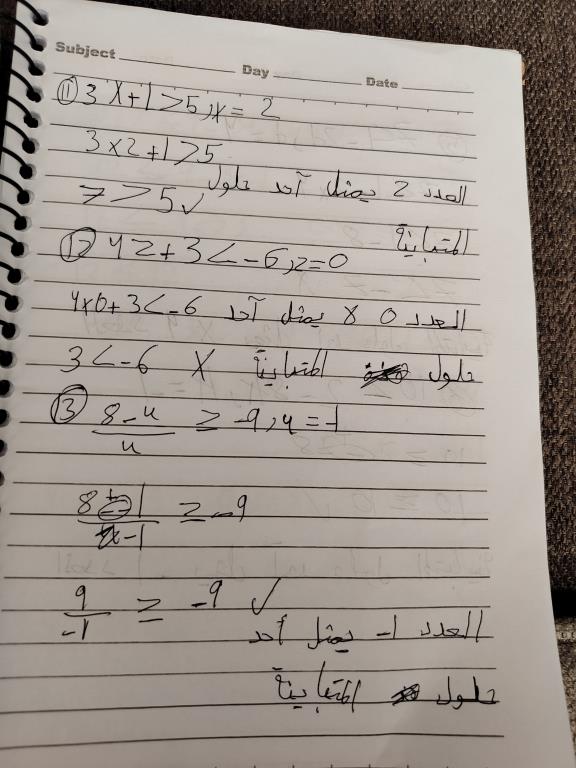 Subject Day Date
⑪ 3x+1>5, x=2
3×2+1>5
7>5✓ العدد 2 يمثل أحد حلول
المتباينة
⑫ 4z+3<-6, z=0
4×0+3<-6 العدد 0 لا يمثل أحد
3<-6 X حلول المتباينة
⑬ (8-u)/u ≥ -9, u=-1
≥ -9
9/-1 ≥ -9 ✓
العدد 1- يمثل أحد
حلول المتباينة